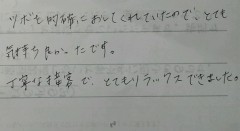 ツボを的確におしてくれていたので、とても
気持ち良かったです。
丁寧な接客で、とてもリラックスできました。